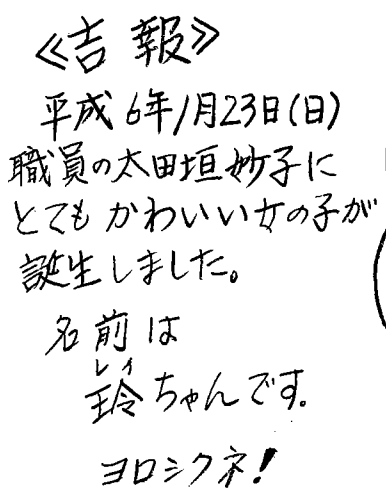 《吉報》
平成6年1月23日(日)
職員の太田垣妙子に
とてもかわいい女の子が
誕生しました。
名前は
レイ
玲ちゃんです。
ヨロシクネ!